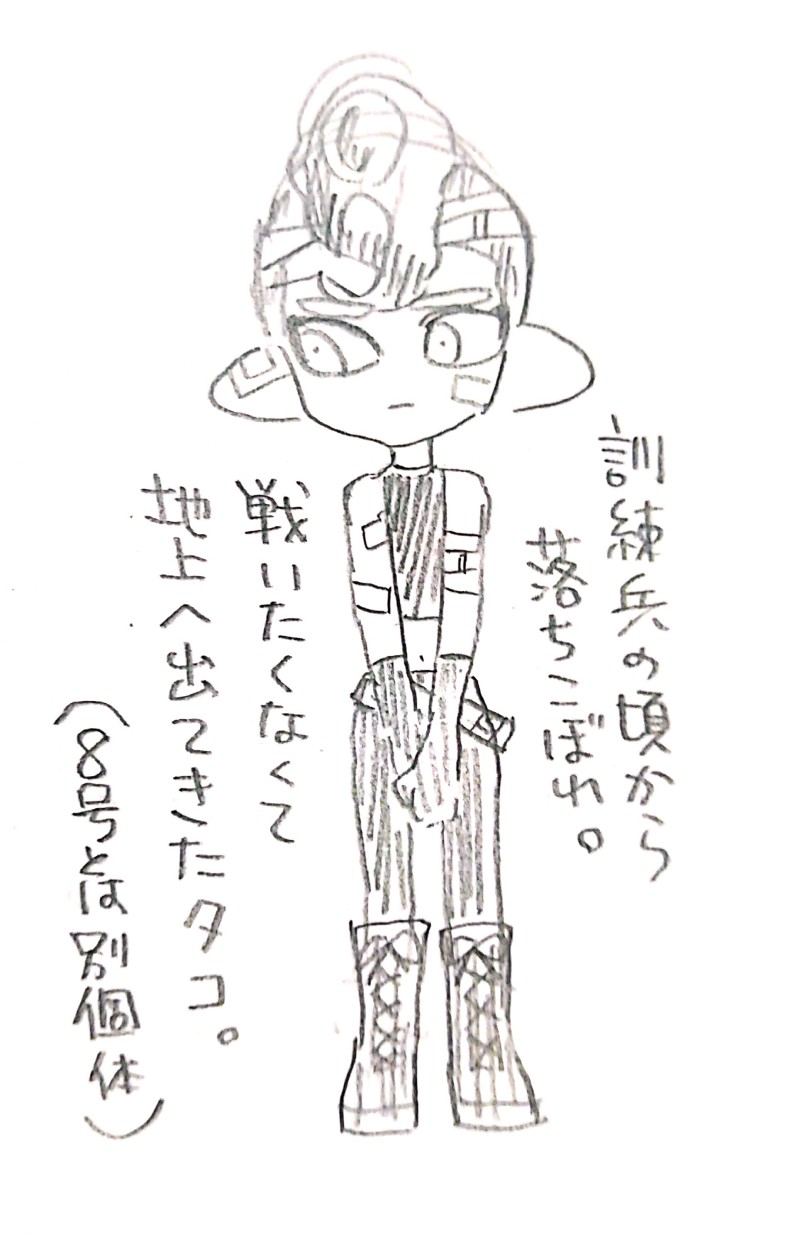 訓練兵の頃から
落ちこぼれ。
戦いたくなくて
地上へ出てきたタコ。
(8号とは別個体)